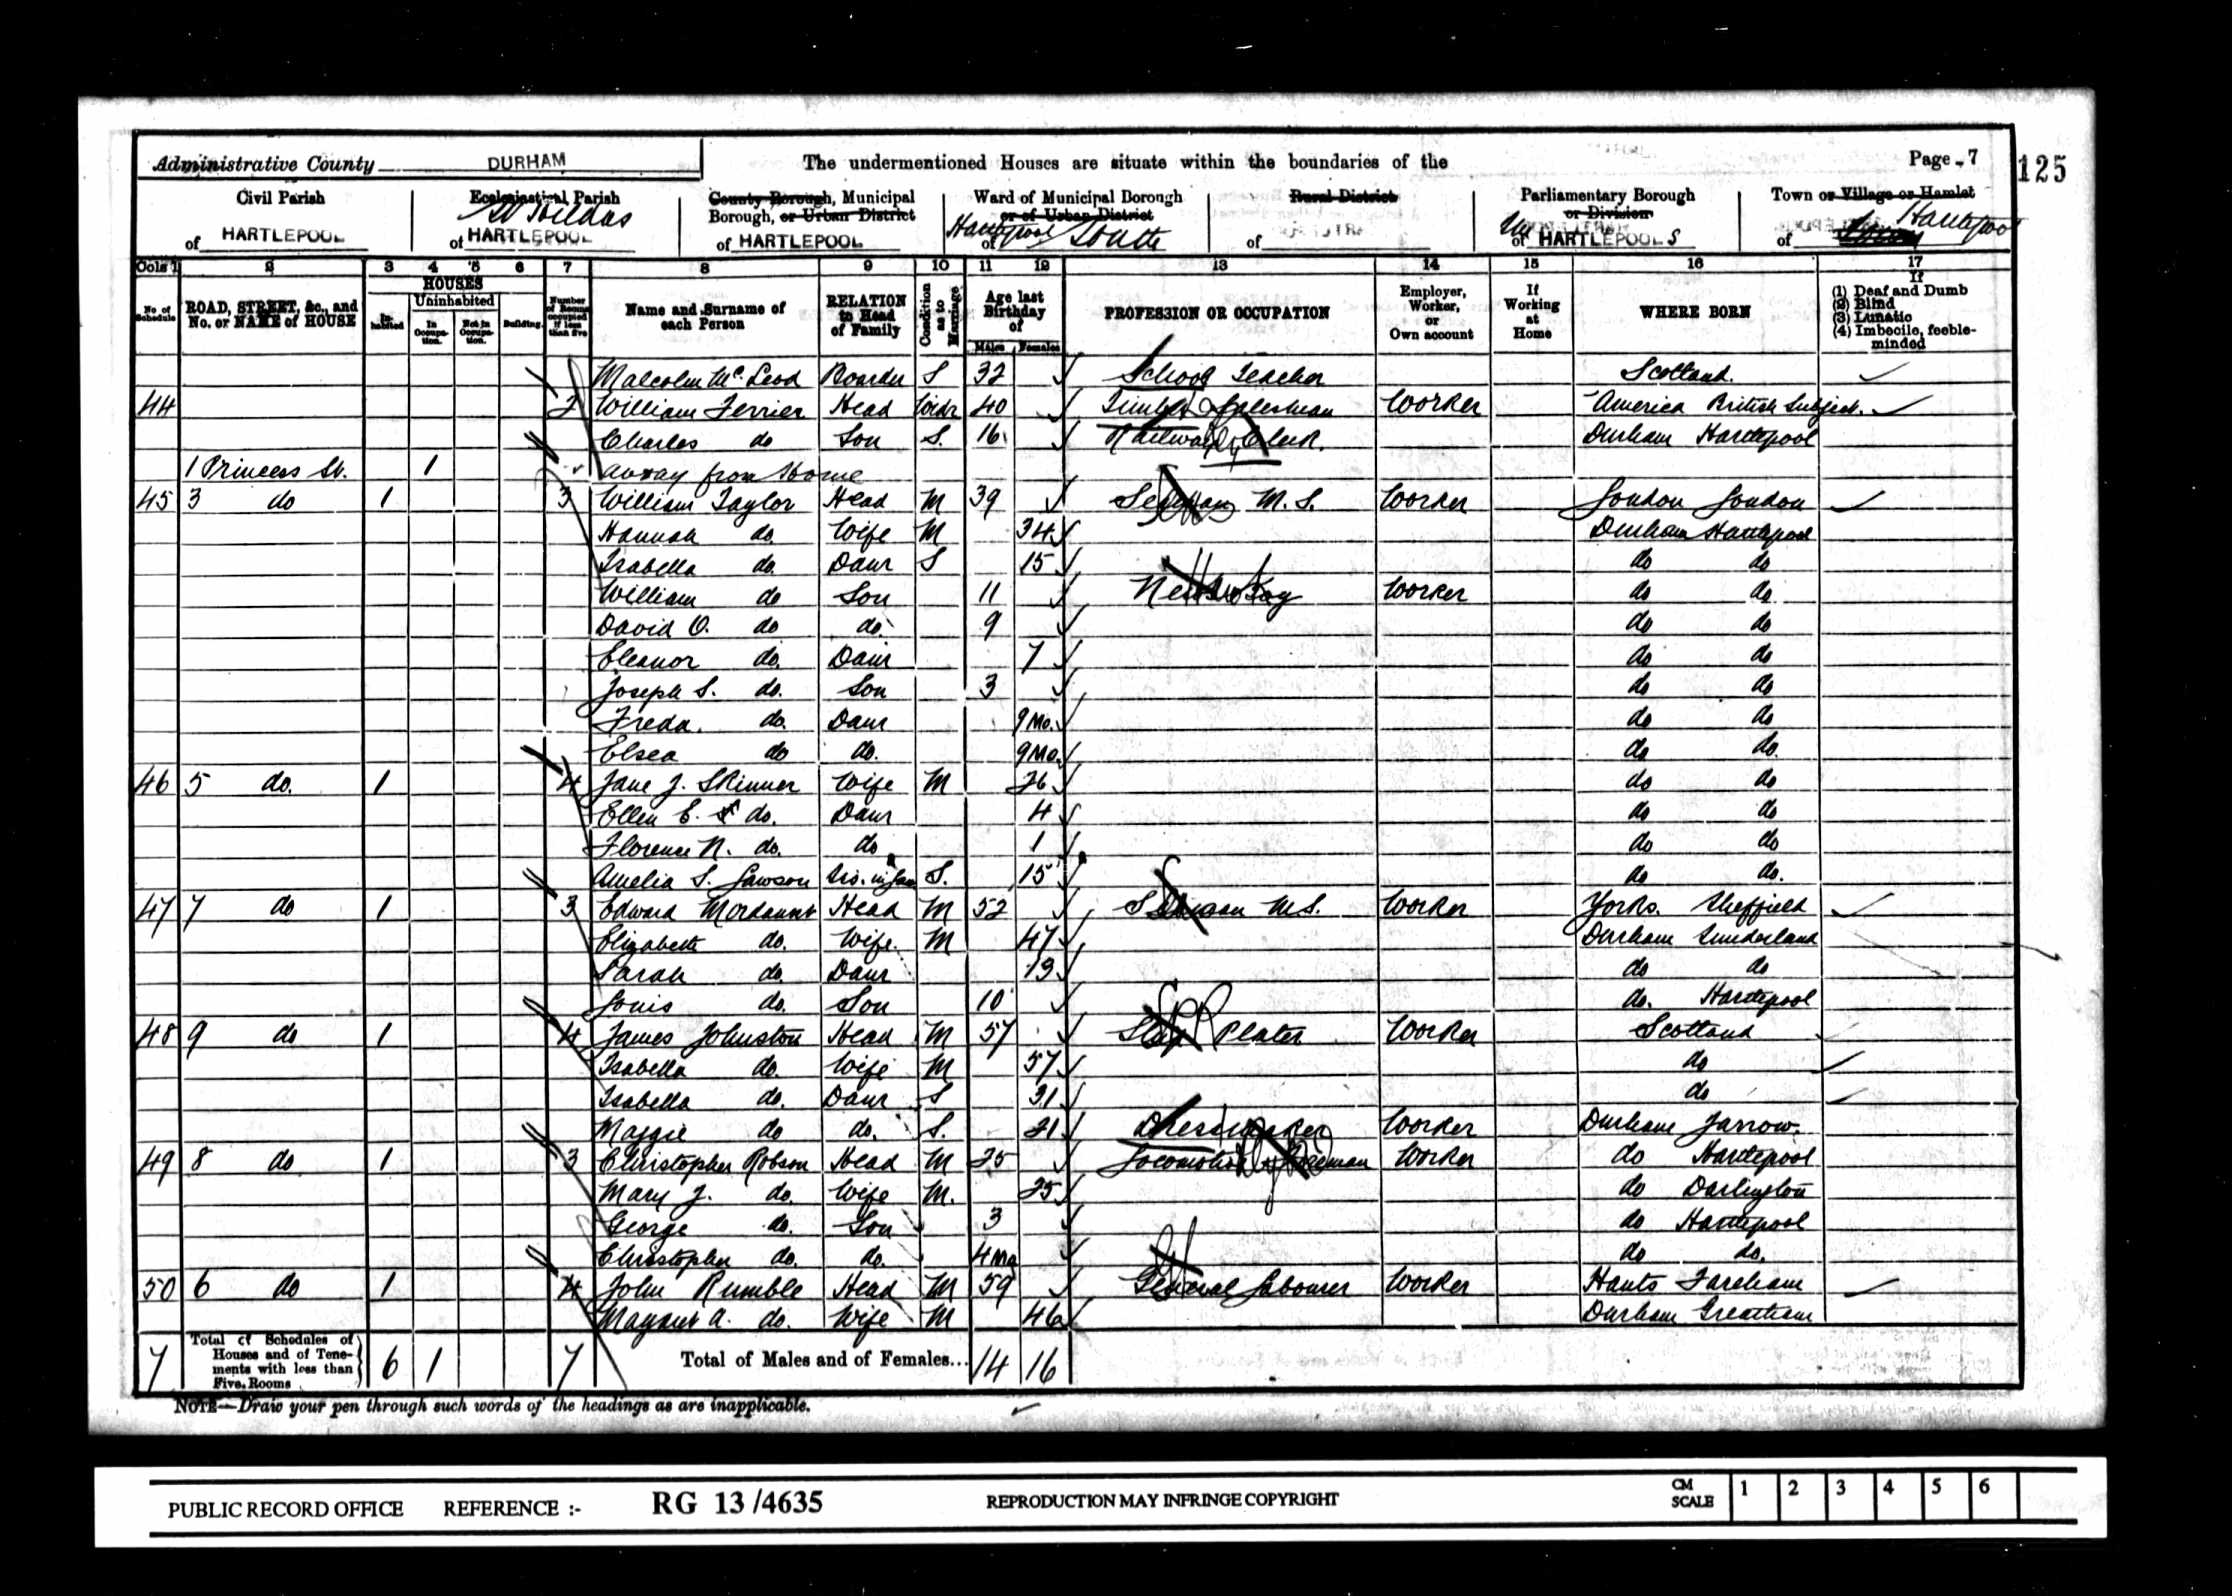 Administrative County DURHAM The undermentioned Houses are situate within the boundaries of the Page 7 125
Civil Parish Ecclesiastical Parish County Borough, Municipal Ward of Municipal Borough Rural District Parliamentary Borough Town or Village or Hamlet
St Hildas Borough, or Urban District or of Urban District or Division Hartlepool
of HARTLEPOOL of HARTLEPOOL of HARTLEPOOL of Hartlepool South of of HARTLEPOOLS of
Cols 1 2 3 4 5 6 7 8 9 10 11 12 13 14 15 16 17
No of Schedule ROAD, STREET, &c., and No. or NAME of HOUSE HOUSES Inhabited Uninhabited In Occupation. Not in Occupation. Building. Number of Rooms occupied if less than five Name and Surname of each Person RELATION to Head of Family Condition as to Marriage Age last Birthday of Males Females PROFESSION OR OCCUPATION Employer, Worker, or Own account If Working at Home WHERE BORN If (1) Deaf and Dumb (2) Blind (3) Lunatic (4) Imbecile, feeble-minded
Malcolm Mc. Leod Boarder S 32 School Teacher Scotland.
44 2 William Ferrier Head Widr 40 Timber Salesman Worker America British Subject.
Charles do Son S. 16 Railway Clerk. Durham Hartlepool
1 Princess St. 1 away from Home
45 3 do 1 3 William Taylor Head M 39 Seaman M.S. Worker London London
Hannah do. Wife M 34 Durham Hartlepool
Isabella do. Daur S 15 do do
William do Son 11 News Boy Worker do do.
David O. do do. 9 do do
Eleanor do. Daur 7 do do
Joseph S. do. Son 3 do do
Freda. do. Daur 9 Mo. do do
Elsea do do. 9 Mo. do do.
46 5 do. 1 4 Jane J. Skinner Wife M 26 do do
Ellen E. do. Daur 4 do do
Florence N. do. do 1 do do
Amelia S. Lawson Sis. in Law S. 15 do do.
47 7 do 1 3 Edward Mordaunt Head M 52 Seaman M.S. Worker Yorks. Sheffield
Elizabeth do. Wife. M 47 Durham Sunderland
Sarah do. Daur 13 do do
Louis do. Son 10 do. Hartlepool
48 9 do 1 4 James Johnston Head M 57 Ship Plater Worker Scotland
Isabella do. Wife M 57 do
Isabella do. Daur S 31 do
Maggie do do. S. 21 Dressmaker Worker Durham Jarrow.
49 8 do 1 3 Christopher Robson Head M 25 Locomotive Fireman Worker do Hartlepool
Mary J. do. Wife M. 25 do Darlington
George do. Son 3 do Hartlepool
Christopher do. do. 4 Mo do do.
50 6 do 1 4 John Rumble Head M 59 General Labourer Worker Hants Fareham
Margaret A. do. Wife M 46 Durham Greatham
7 Total of Schedules of Houses and of Tenements with less than Five Rooms 6 1 7 Total of Males and of Females... 14 16
NOTE—Draw your pen through such words of the headings as are inapplicable.
PUBLIC RECORD OFFICE REFERENCE :- RG 13/4635 REPRODUCTION MAY INFRINGE COPYRIGHT CM SCALE 1 2 3 4 5 6